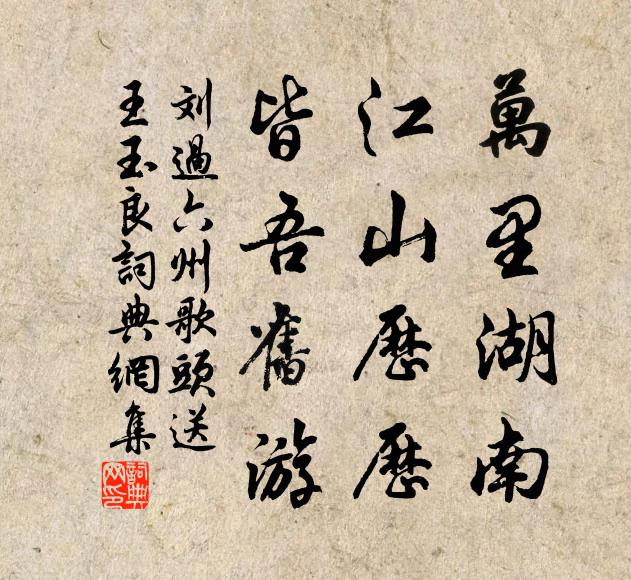 萬里湖南
江山歷歷
皆吾舊游
刘過六州歌頭送
王玉良詞典網集
詞典网印